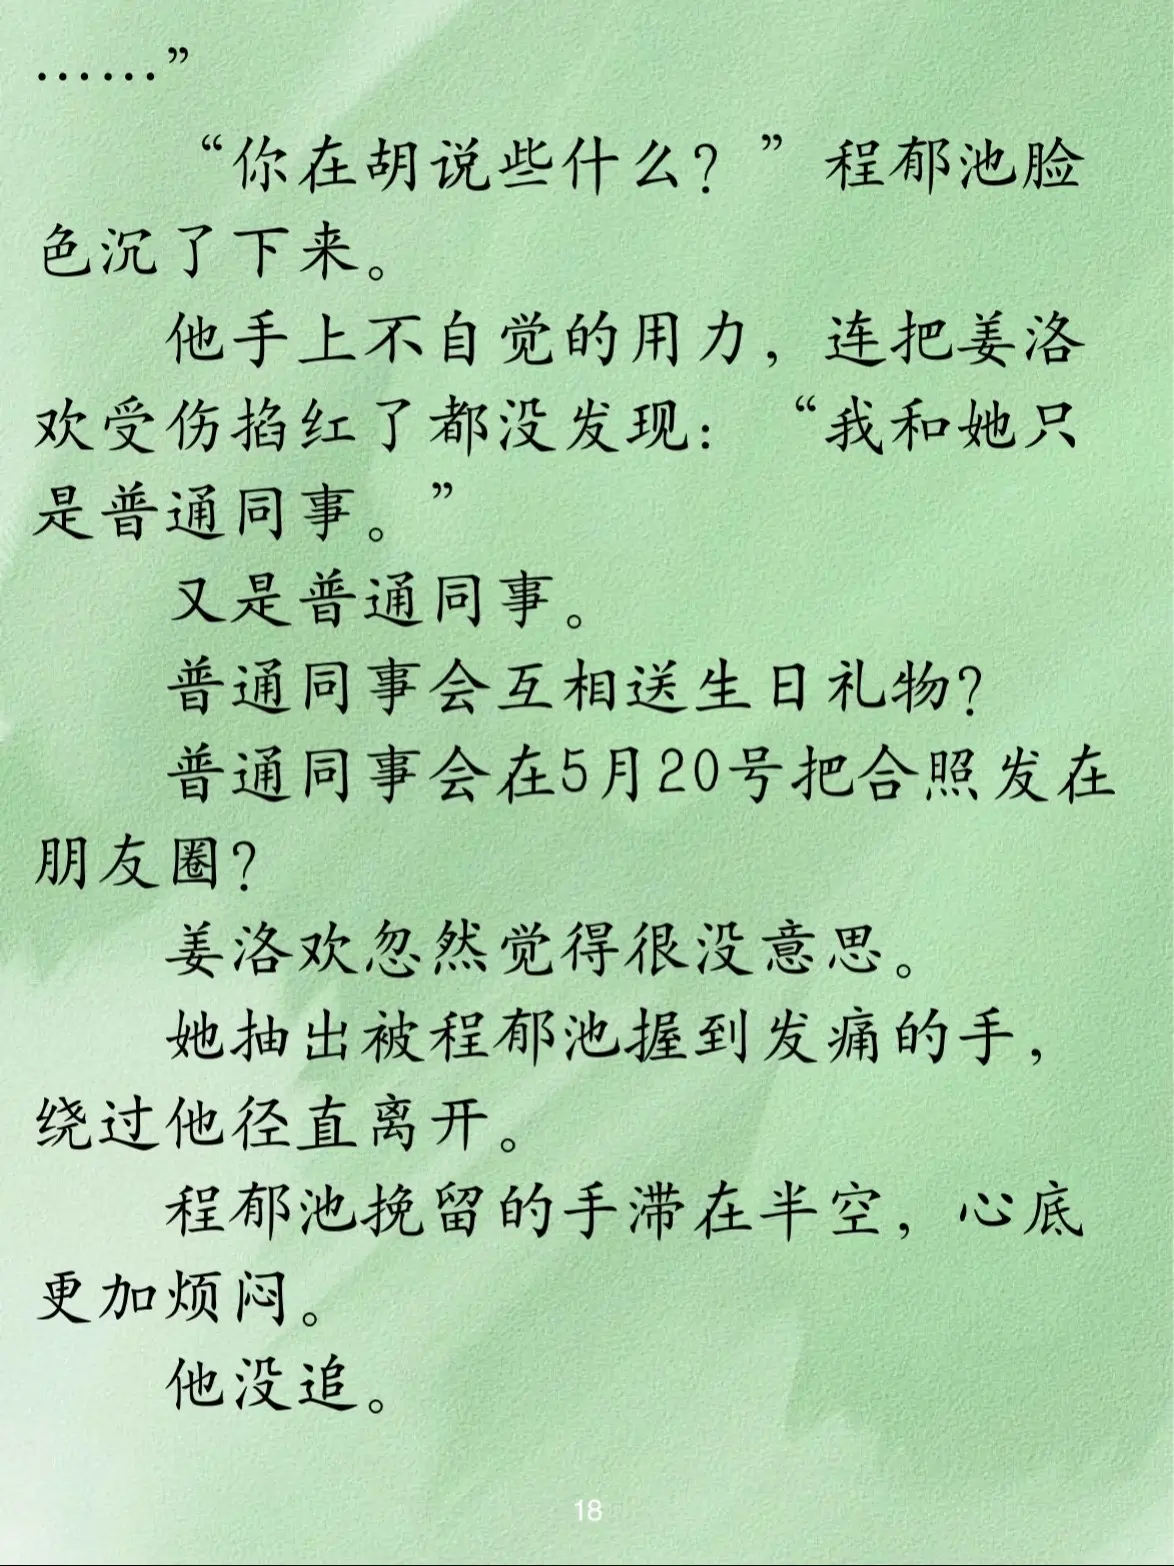 ……”
“你在胡说些什么？”程郁池脸
色沉了下来。
他手上不自觉的用力，连把姜洛
欢受伤掐红了都没发现：“我和她只
是普通同事。”
又是普通同事。
普通同事会互相送生日礼物？
普通同事会在5月20号把合照发在
朋友圈？
姜洛欢忽然觉得很没意思。
她抽出被程郁池握到发痛的手，
绕过他径直离开。
程郁池挽留的手滞在半空，心底
更加烦闷。
他没追。
18